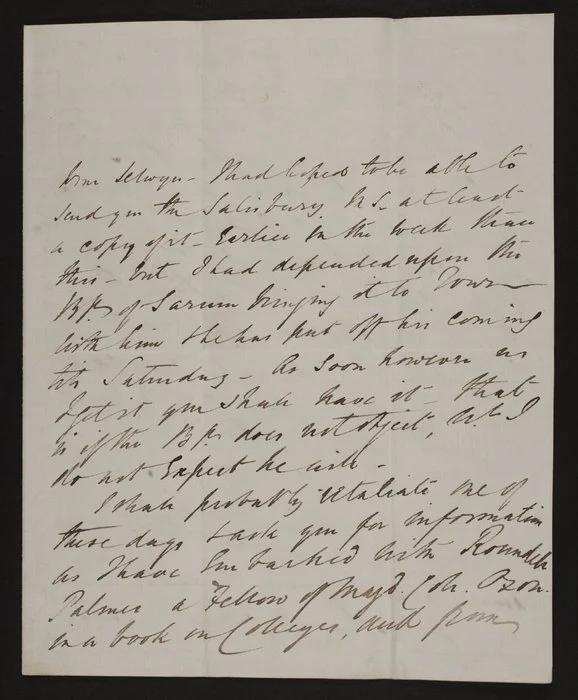 from Selwyn - I had hoped to be able to
send you the Salisbury MS - at least
a copy of it - Earlier in the week than
this - but I had depended upon the
Bp. of Sarum bringing it to Town
with him & he has put off his coming
till Saturday - As soon however as
I get it you shall have it - that
is if the Bp. does not object, wh. I
do not Expect he will -
I shall probably retaliate one of
these days & ask you for information
as I have Embarked with Roundell
Palmer a Fellow of Magd. Coll. Oxon.
in a book on Colleges, and from